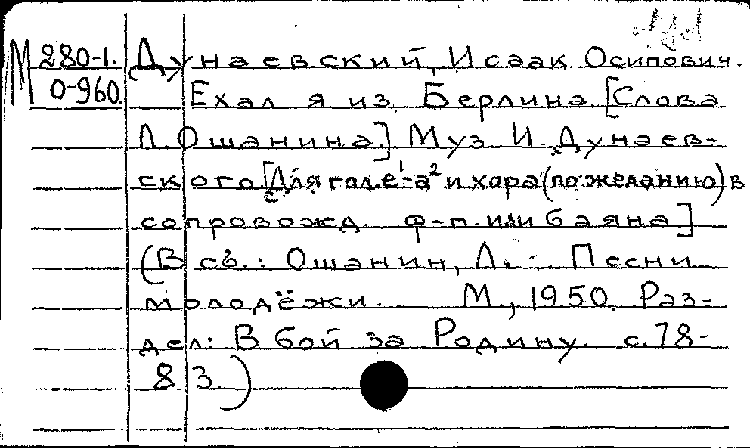 М 280-1. Дунаевский, Исаак Осипович.
0-960. Ехал я из Берлина [Слова
Л. Ошанина.] Муз. И. Дунаев-
ского [Для гол. e¹-a² и хора (по желанию) в
сопровожд. ф-п. или баяна]
(В сб.: Ошанин, Л. Песни
молодёжи. М., 1950. Раз-
дел: В бой за Родину. с. 78-
83.)